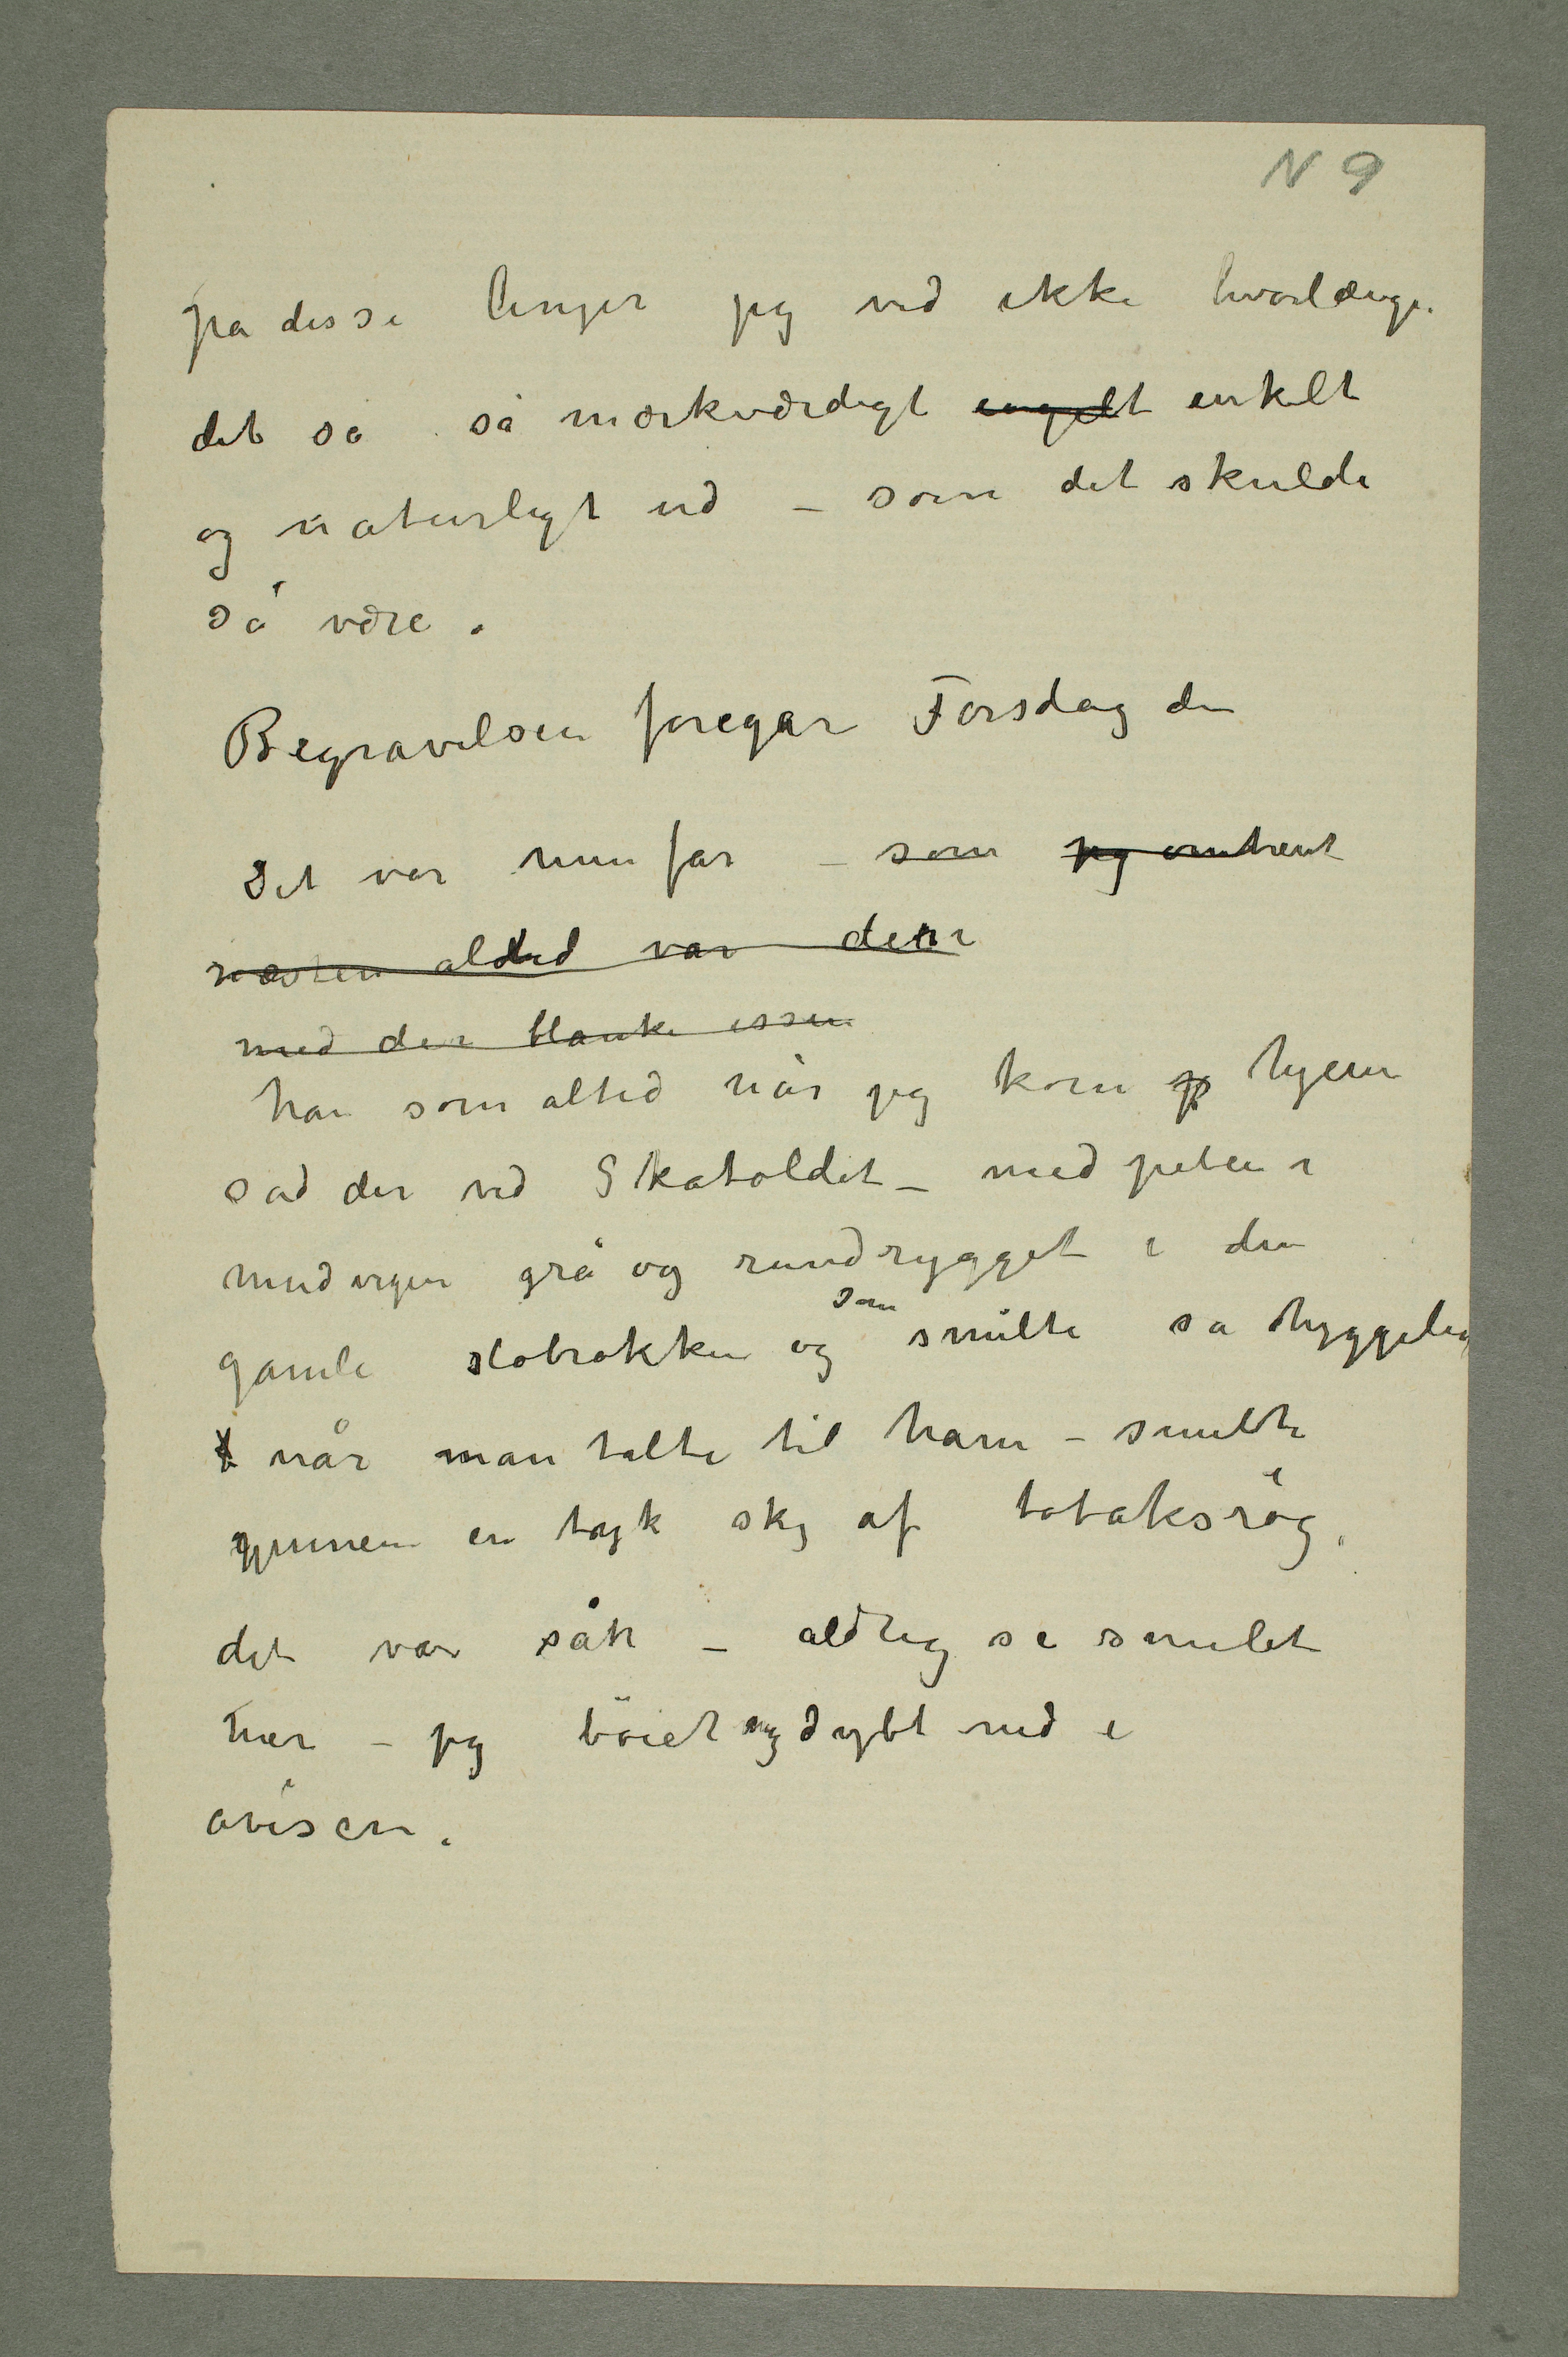 N 9
på disse linjer jeg ved ikke hvorlænge.
det så så mærkværdigt engelt enkelt
og naturligt ud – som det skulde
så være.
Begravelsen foregår Torsdag den
Det var min far – som jeg omtrent
næsten altid var den
med den blanke issen
han som altid når jeg kom hjem
sad der ved Skatoldet – med piben i
mundvigen grå og rundrygget i den
gamle slobrokken og som smilte så hyggelig
når man talte til ham – smilte
gjennem en tyk sky af tobaksrøg.
det var sån – aldrig se smilet
mer – jeg böiet mig dybt ned i
avisen.